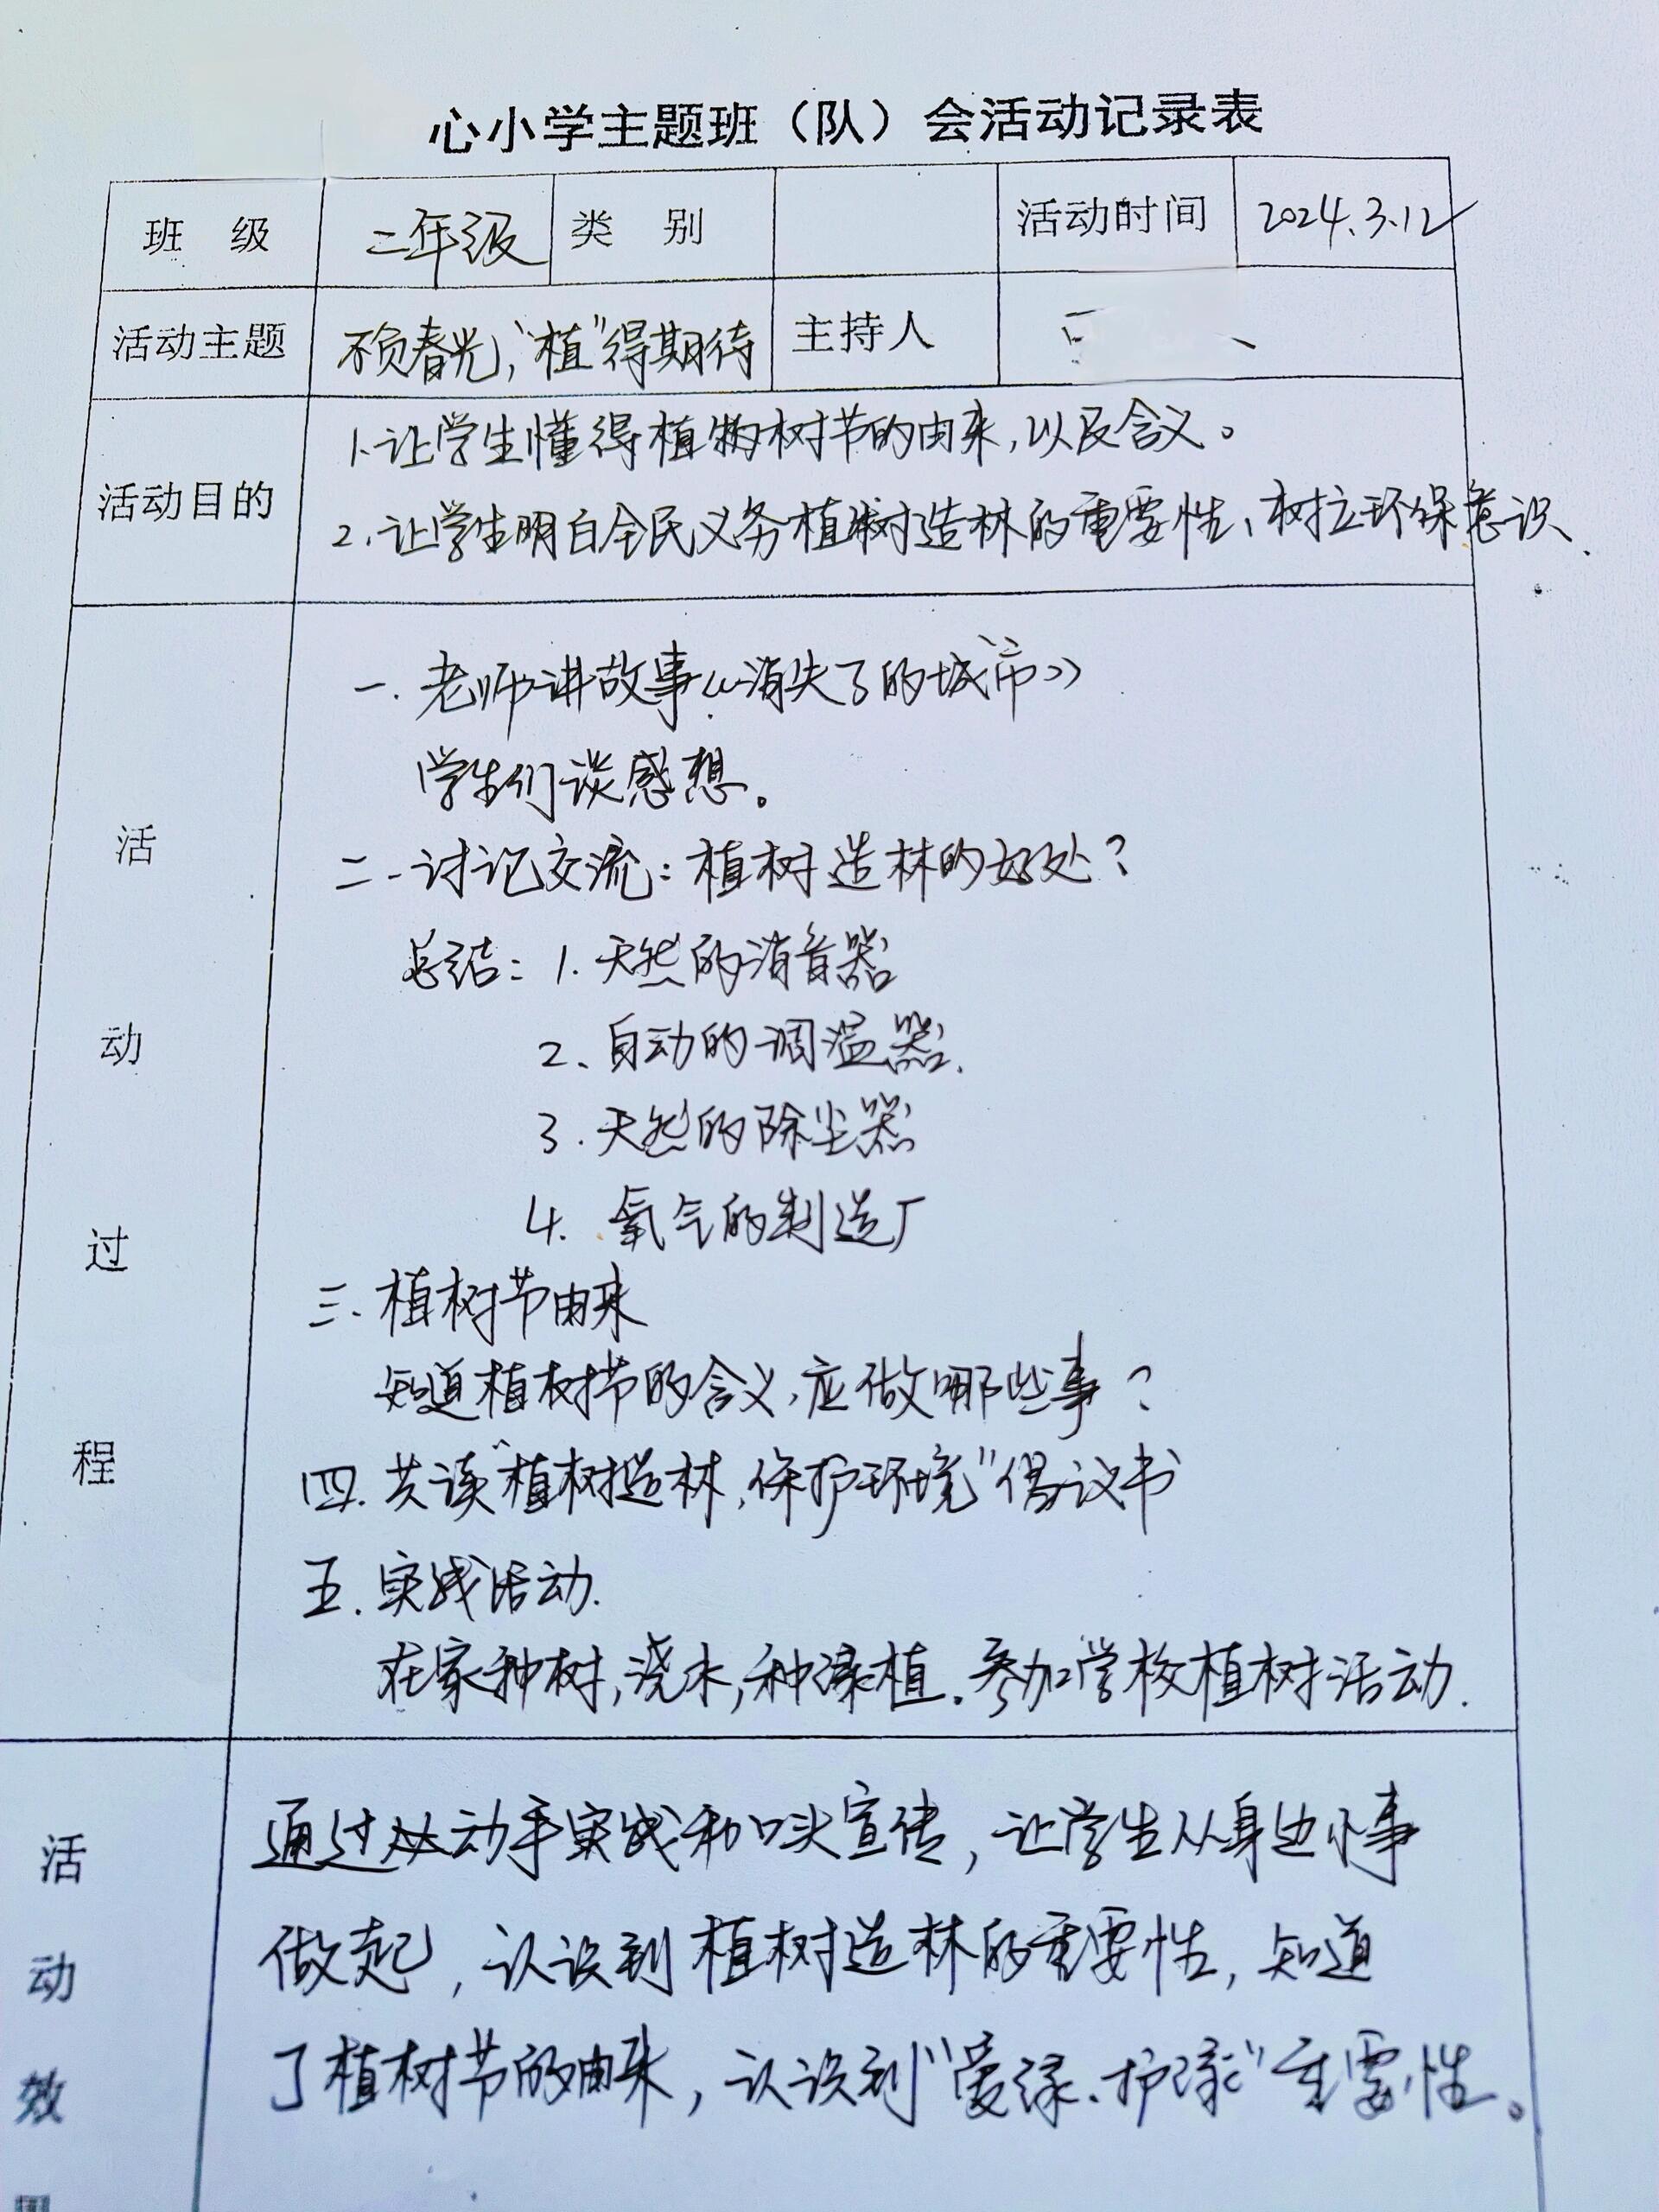 心小学主题班（队）会活动记录表
班 级 二年级 类 别 活动时间 2024.3.12
活动主题 不负春光，“植”得期待 主持人
活动目的
1.让学生懂得植物树节的由来，以及含义。
2.让学生明白全民义务植树造林的重要性、树立环保意识.
活动过程
一.老师讲故事《消失了的城市》
学生们谈感想。
二.讨论交流：植树造林的好处？
总结：1.天然的消音器
2、自动的调温器.
3.天然的除尘器
4.氧气的制造厂
三.植树节由来
知道植树节的含义，应做哪些事？
四.共读“植树造林，保护环境”倡议书
五.实践活动.
在家种树，浇水，种绿植。参加学校植树活动.
活动效
通过动手实践和口头宣传，让学生从身边小事
做起，认识到植树造林的重要性，知道
了植树节的由来，认识到“爱绿、护绿”重要性。